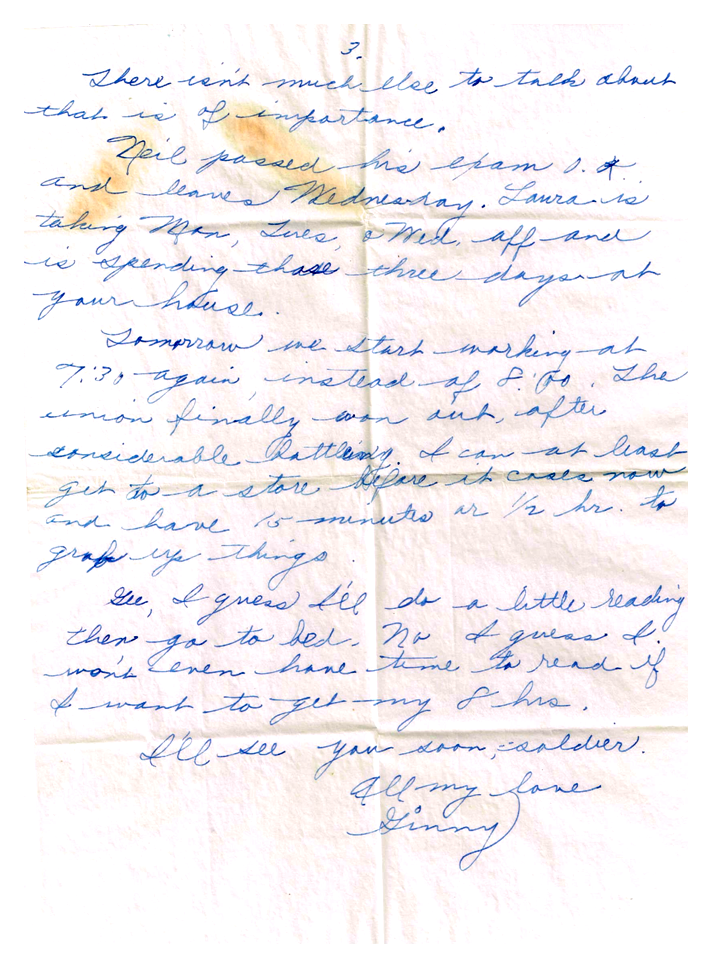 3.
There isn't much else to talk about
that is of importance.
Neil passed his exam O.K.
and leaves Wednesday. Laura is
taking Mon, Tues, & Wed. off and
is spending those three days at
your house.
Tomorrow we start working at
7:30 again, instead of 8:00. The
union finally won out, after
considerable battling. I can at least
get to a store before it closes now
and have 15 minutes or 1/2 hr. to
grab up things.
Gee, I guess I'll do a little reading
then go to bed. No I guess I
won't even have time to read if
I want to get my 8 hrs.
I'll see you soon, soldier.
All my love
Ginny